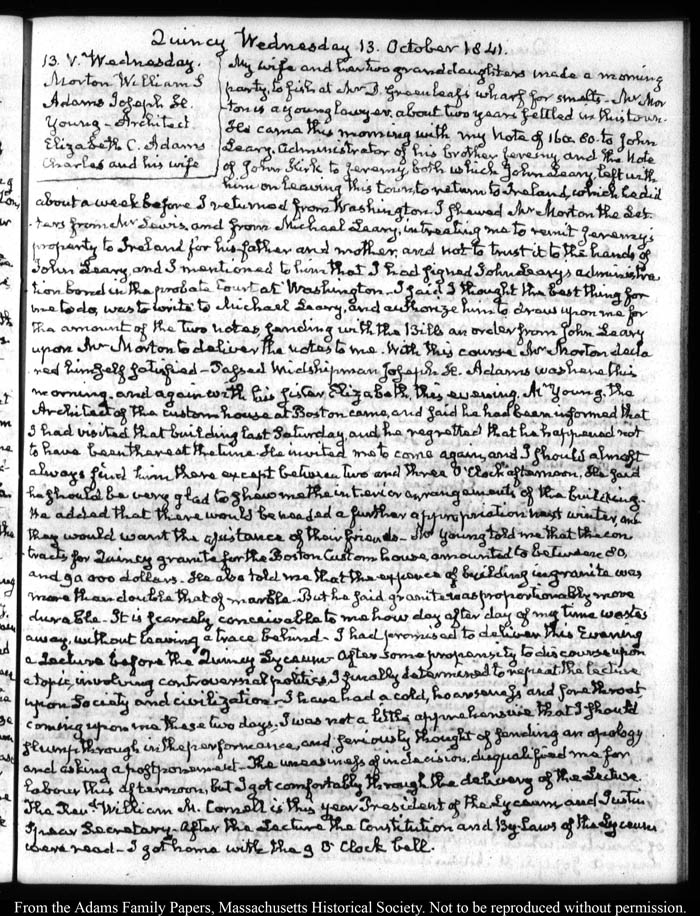 Quincy Wednesday 13. October 1841.
13. V. Wednesday.
Morton William S
Adams Joseph H.
Young - Architect
Elizabeth C. Adams
Charles and his wife
My wife and her two granddaughters made a morning
party, to fish at Mr D. Greenleaf's wharf for smelts - Mr Mor
ton is a young lawyer, about two years settled in this town.
He came this morning with my Note of 160. 80. to John
Leary, Administrator of his brother Jeremy and the Note
of John Kirk to Jeremy, both which John Leary, left with
him on leaving this town to return to Ireland, which he did
about a week before I returned from Washington. I shewed Mr Morton the Let-
ters from Mr Lewis, and from Michael Leary, intreating me to remit Jeremy's
property to Ireland for his father and mother, and not to trust it to the hands of
John Leary, and I mentioned to him that I had signed John Leary's administra
tion bond in the probate Court at Washington. I said I thought the best thing for
me to do, was to write to Michael Leary, and authorize him to draw upon me for
the amount of the two notes, sending with the Bills an order from John Leary
upon Mr Morton to deliver the notes to me. With this course Mr Morton decla
red himself satisfied - Passed Midshipman Joseph H. Adams was here this
morning, and again with his sister Elizabeth, this evening. Mr Young, the
Architect of the custom house at Boston came, and said he had been informed that
I had visited that building last Saturday, and he regretted that he happened not
to have been there at the time. He invited me to come again, and I should almost
always find him there except between two and three O'Clock afternoon. He said
he should be very glad to shew me the interior arrangements of the building.
He added that there would be needed a further appropriation next winter, and
they would want the assistance of their friends - Mr Young told me that the con
tracts for Quincy granite for the Boston Custom house, amounted to between 80,
and 90 000 dollars. He also told me that the expence of building in granite was
more than double that of marble. But he said granite was proportionably more
durable - It is scarcely conceivable to me how day after day of my time wastes
away, without leaving a trace behind - I had promised to deliver this Evening
a Lecture before the Quincy Lyceum - After some propensity to discourse upon
a topic, involving controversial politics, I finally determined to repeat the lecture
upon Society and civilization - I have had a cold, hoarseness and sore throat
coming upon me these two days. I was not a little apprehensive that I should
slump through in the performance, and seriously thought of sending an apology
and asking a postponement - The uneasiness of indecision, disqualified me for
labour this afternoon, but I got comfortably through the delivery of the Lecture.
The Revd William M. Cornell is this year President of the Lyceum and Justin
Spear Secretary - After the Lecture the Constitution and By-Laws of the Lyceum
were read - I got home with the 9 O'Clock bell.
From the Adams Family Papers, Massachusetts Historical Society. Not to be reproduced without permission.